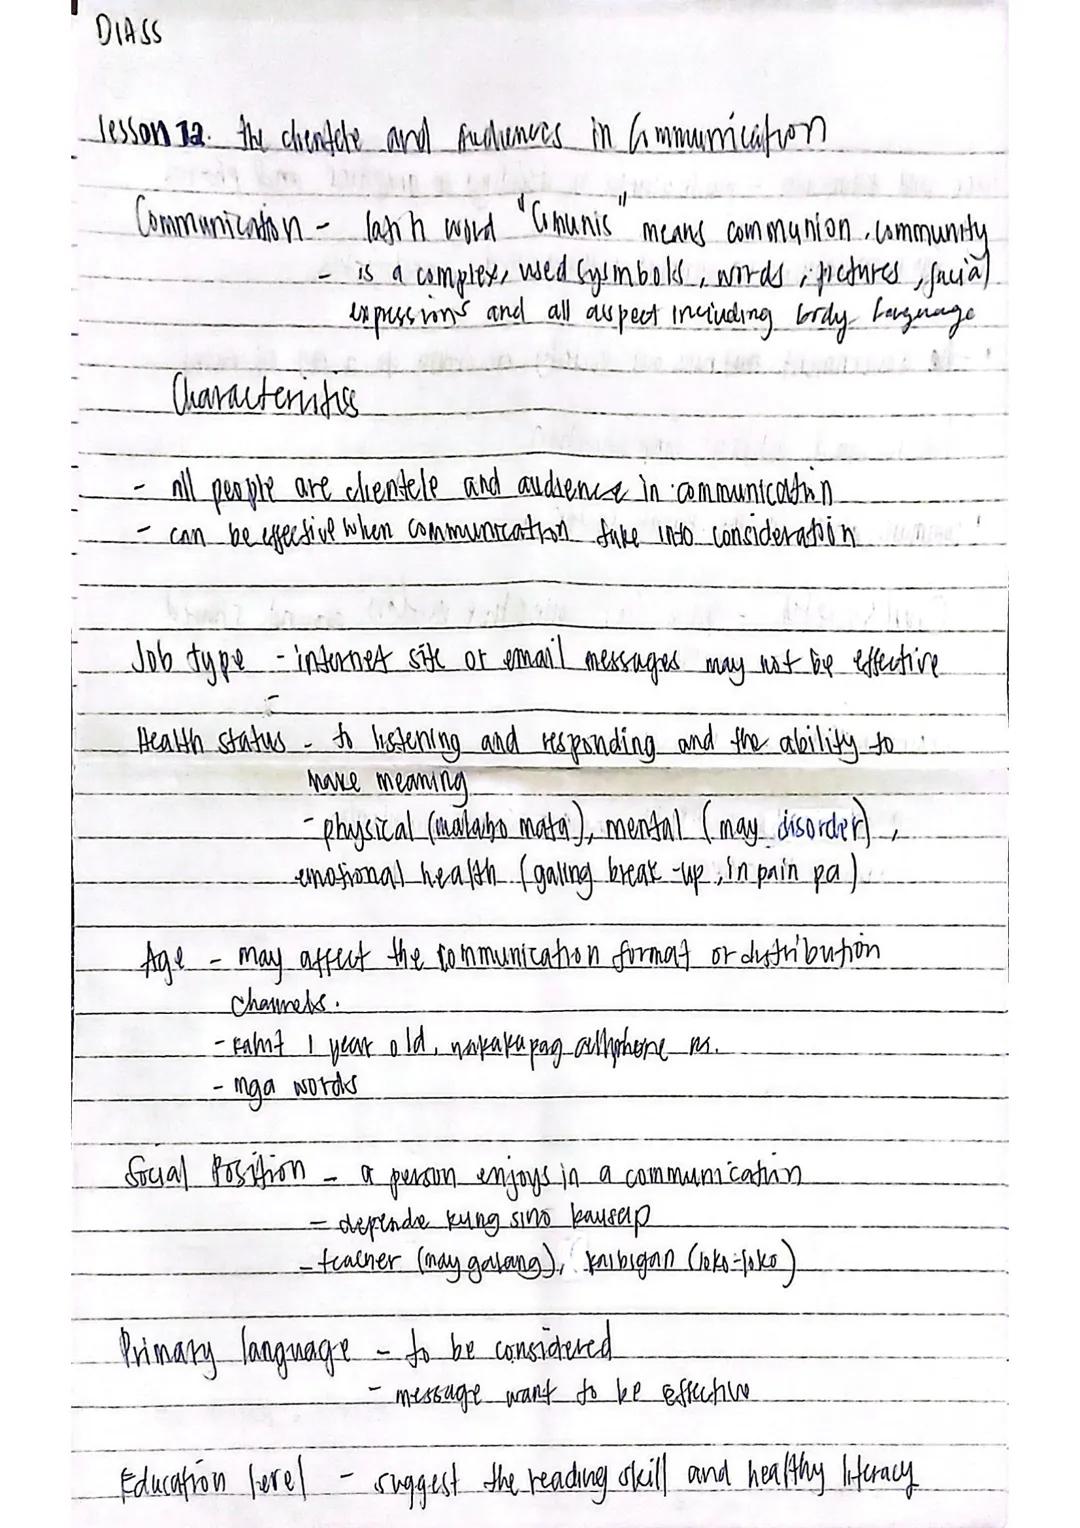 DIASS
lesson 12. the clientele and Audiences in Communication
Communication - latin word "Comunis" means communion, community
- is a complex, used sysmbols, words, pictures, facial
expressions and all aspect including body language
Characteristics
- all people are clientele and audience in communication
- can be effective when communication take into consideration
Job type - internet site or email messages may not be effective
-
Health status - to listening and responding and the ability to
make meaning
- physical (malabo mata), mental (may disorder),
emotional health (galing break-up, in pain pa)
Age - may affect the communication format or distribution
channels.
- kahit 1 year old, nakakapag cellphone na.
- mga words
Social Position - a person enjoys in a communication
- depende kung sino kausap
- teacher (may galang), kaibigan (loko-loko)
Primary language - to be considered
- message want to be effective
Education level - suggest the reading skill and healthy literacy